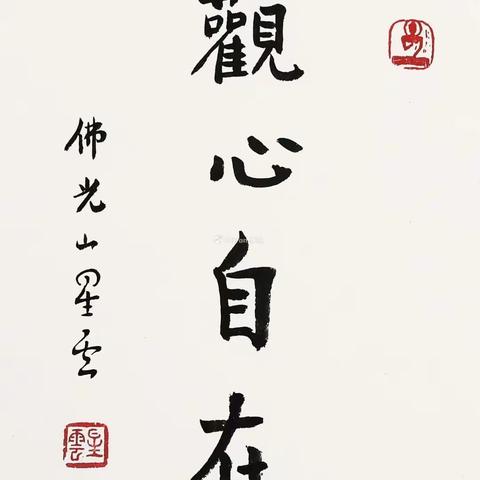 觀心自在
佛光山星云
星雲